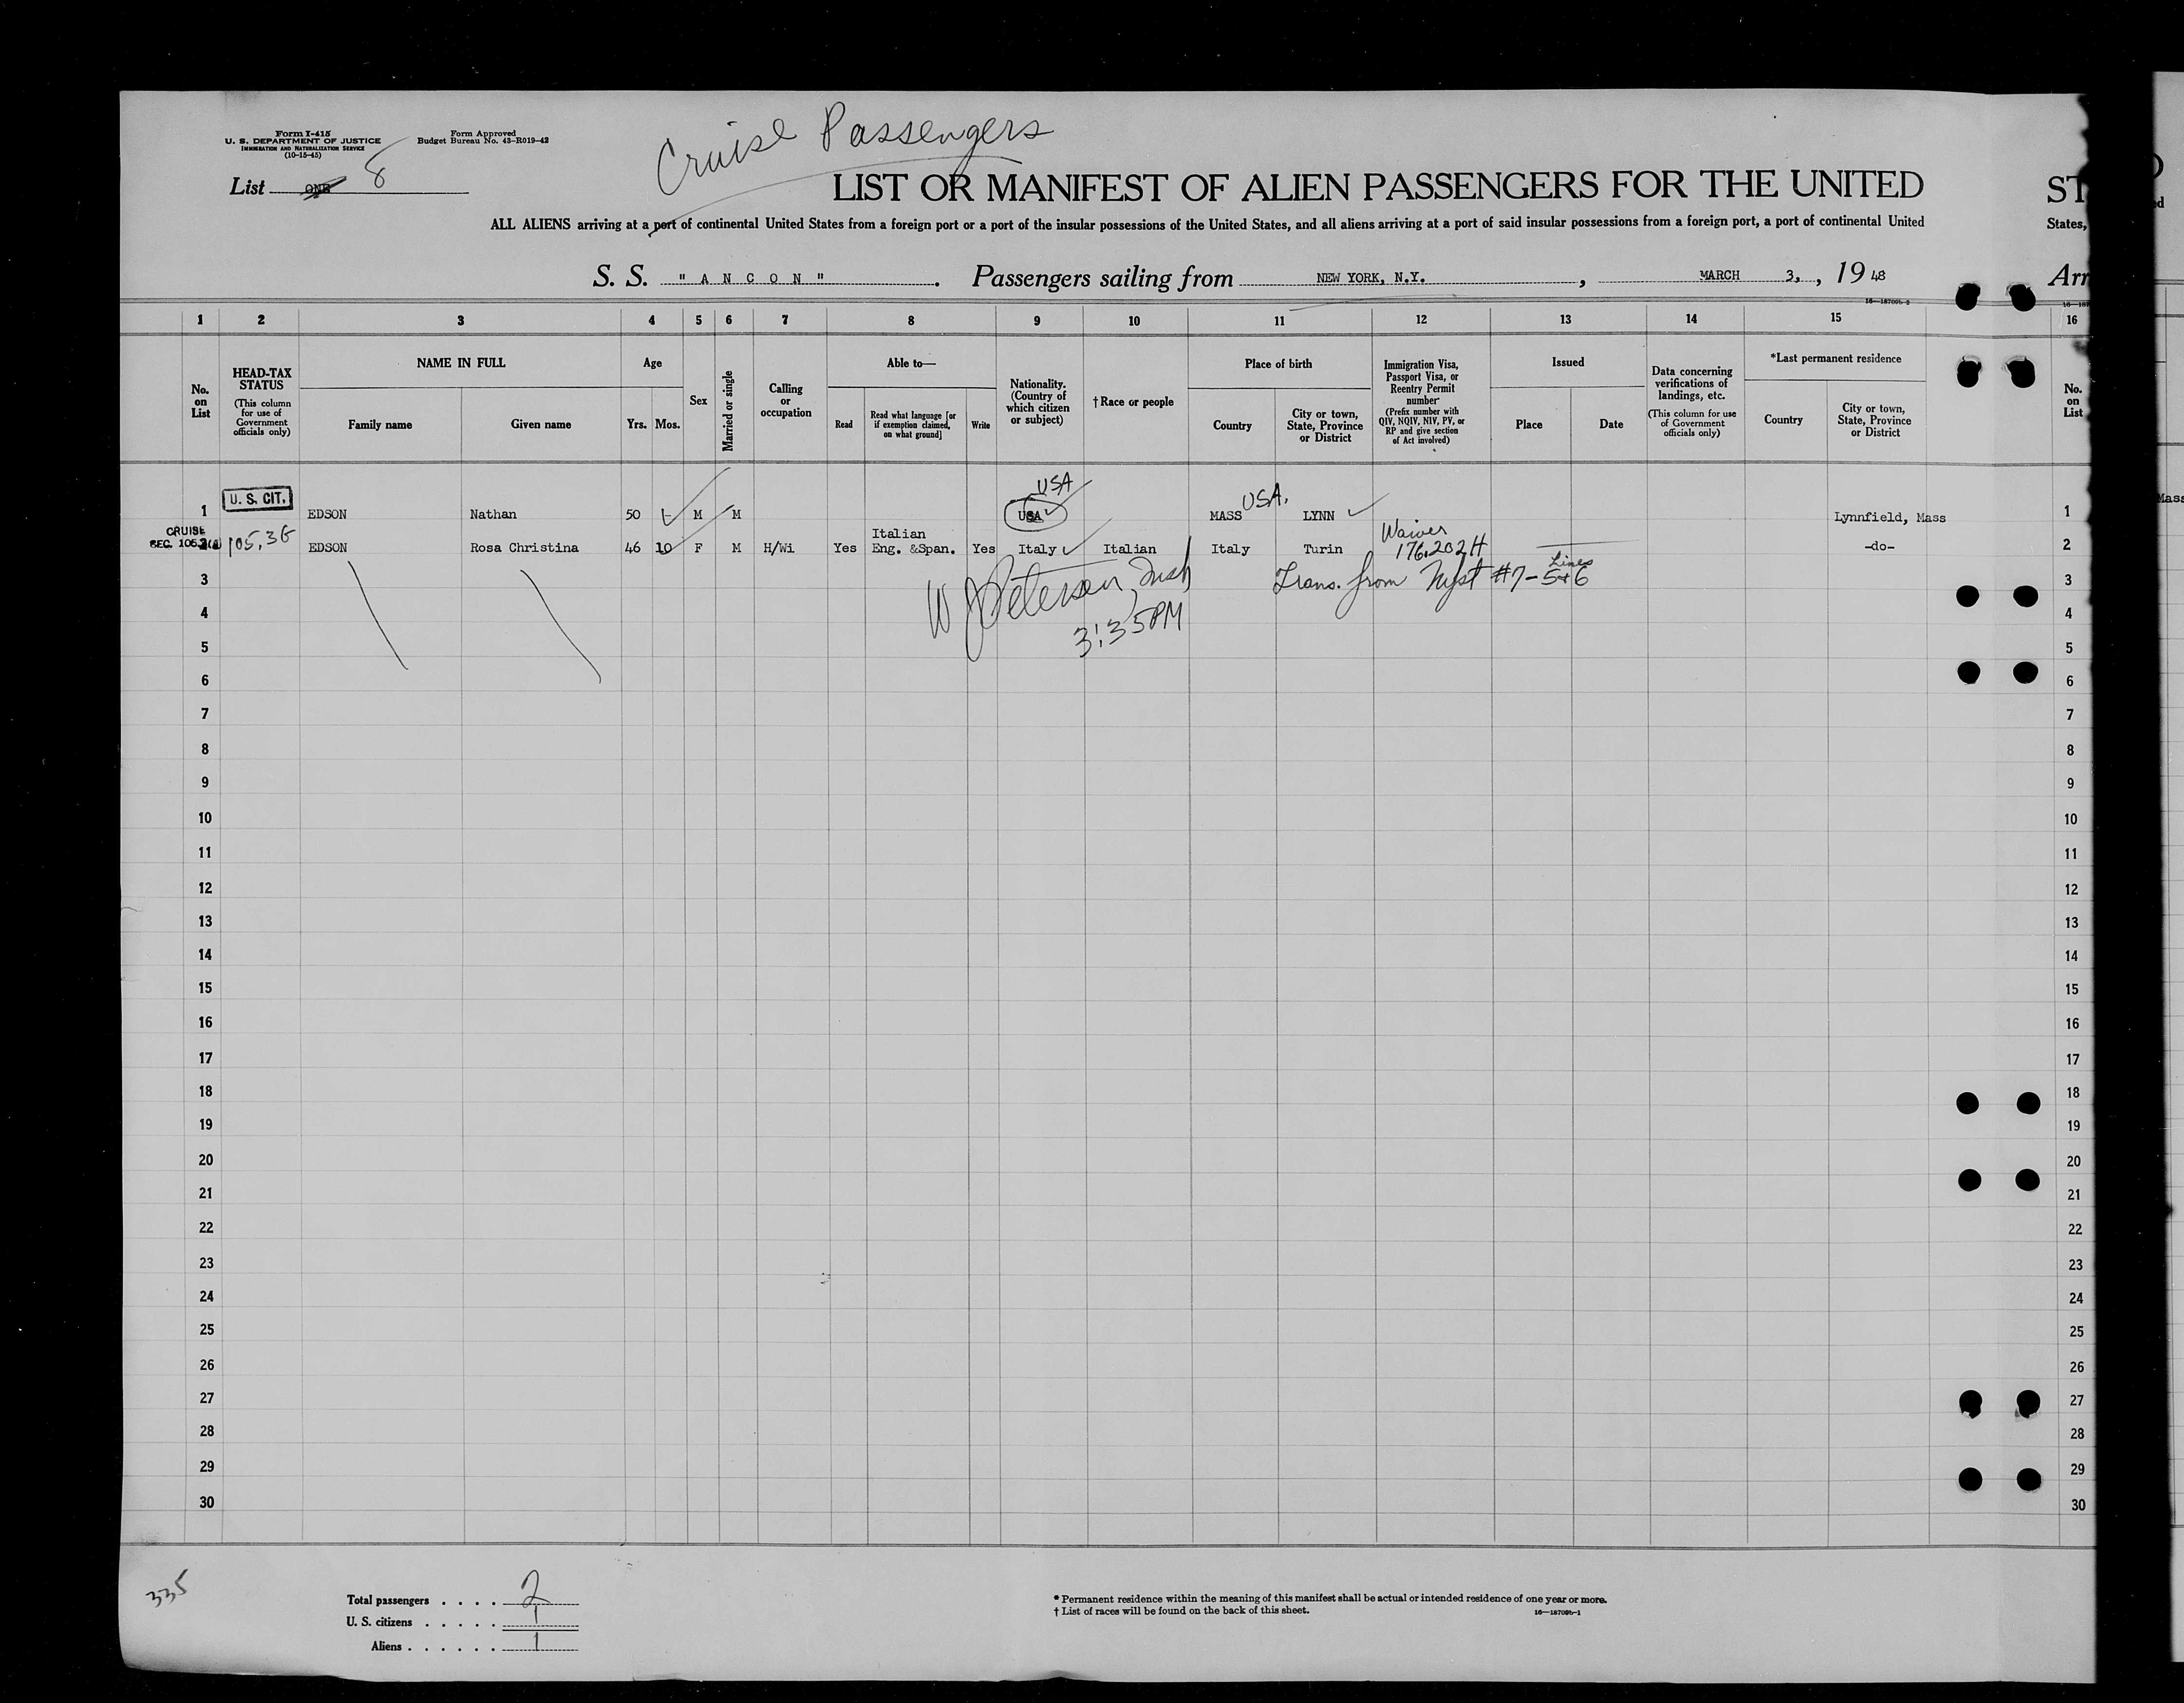 Cruise Passengers
Form I-415
U. S. DEPARTMENT OF JUSTICE
IMMIGRATION AND NATURALIZATION SERVICE
(10-15-45)
Form Approved
Budget Bureau No. 43-R019-42
List ONE 8
LIST OR MANIFEST OF ALIEN PASSENGERS FOR THE UNITED
ST
ALL ALIENS arriving at a port of continental United States from a foreign port or a port of the insular possessions of the United States, and all aliens arriving at a port of said insular possessions from a foreign port, a port of continental United
States,
S. S. " A N C O N " . Passengers sailing from NEW YORK, N.Y. , MARCH 3, , 19 48
Arr
16—18709b-2
1 2 3 4 5 6 7 8 9 10 11 12 13 14 15 16
No. on List
HEAD-TAX STATUS
(This column for use of Government officials only)
NAME IN FULL
Family name Given name
Age
Yrs. Mos.
Sex
Married or single
Calling or occupation
Able to—
Read
Read what language [or if exemption claimed, on what ground]
Write
Nationality. (Country of which citizen or subject)
† Race or people
Place of birth
Country
City or town, State, Province or District
Immigration Visa, Passport Visa, or Reentry Permit number
(Prefix number with QIV, NQIV, NIV, PV, or RP and give section of Act involved)
Issued
Place Date
Data concerning verifications of landings, etc.
(This column for use of Government officials only)
*Last permanent residence
Country
City or town, State, Province or District
No. on List
USA
1 U. S. CIT. EDSON Nathan 50 M M USA MASS USA. LYNN Lynnfield, Mass 1
CRUISE
SEC. 105.3(a) 105.3G EDSON Rosa Christina 46 10 F M H/Wi Yes Italian Eng. &Span. Yes Italy Italian Italy Turin Waiver 176.202H -do- 2
3 W J Petersen, Insp Trans. from Nfst #7 - Lines 5+6 3
4 3:35PM 4
5 5
6 6
7 7
8 8
9 9
10 10
11 11
12 12
13 13
14 14
15 15
16 16
17 17
18 18
19 19
20 20
21 21
22 22
23 23
24 24
25 25
26 26
27 27
28 28
29 29
30 30
335
Total passengers . . . . 2
U. S. citizens . . . . . 1
Aliens . . . . . . 1
* Permanent residence within the meaning of this manifest shall be actual or intended residence of one year or more.
† List of races will be found on the back of this sheet.
16—18709b-1
Mass